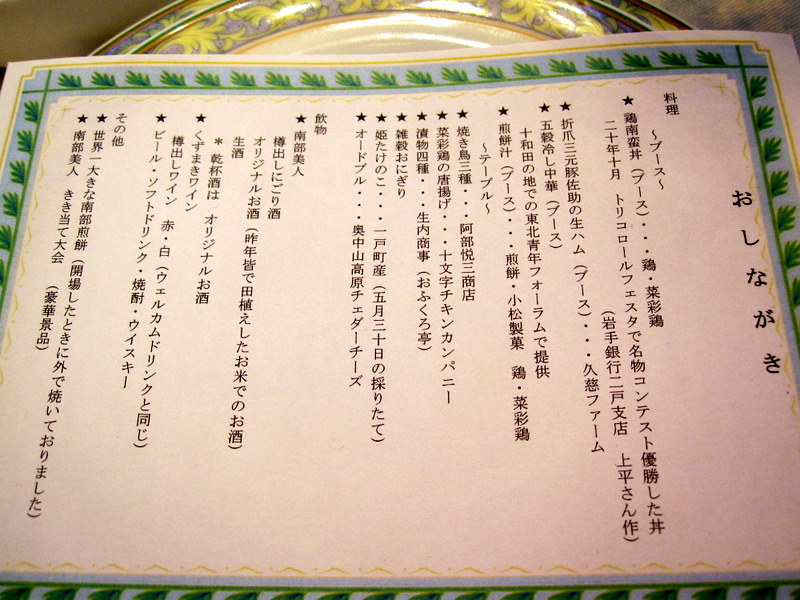 おしながき
料理
～ブース～
★ 鶏南蛮丼（ブース）・・・鶏・菜彩鶏
二十年十月 トリコロールフェスタで名物コンテスト優勝した丼
（岩手銀行二戸支店 上平さん作）
★ 折爪三元豚佐助の生ハム（ブース）・・・久慈ファーム
★ 五穀冷し中華（ブース）
十和田の地での東北青年フォーラムで提供
★ 煎餅汁（ブース）・・・煎餅・小松製菓 鶏・菜彩鶏
～テーブル～
★ 焼き鳥三種・・・阿部悦三商店
★ 菜彩鶏の唐揚げ・・・十文字チキンカンパニー
★ 漬物四種・・・生内商事（おふくろ亭）
★ 雑穀おにぎり
★ 姫たけのこ・・・一戸町産（五月三十日の採りたて）
★ オードブル・・・奥中山高原チェダーチーズ
飲物
★ 南部美人
樽出しにごり酒
オリジナルお酒（昨年皆で田植えしたお米でのお酒）
生酒
＊乾杯酒は オリジナルお酒
★ くずまきワイン
樽出しワイン 赤・白（ウェルカムドリンクと同じ）
★ ビール・ソフトドリンク・焼酎・ウイスキー
その他
★ 世界一大きな南部煎餅（開場したときに外で焼いておりました）
★ 南部美人 きき当て大会 （豪華景品）